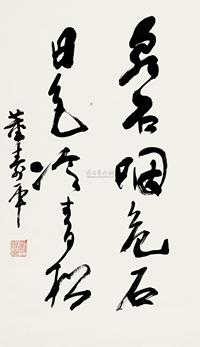 泉石咽危石
日色冷青松
董寿平